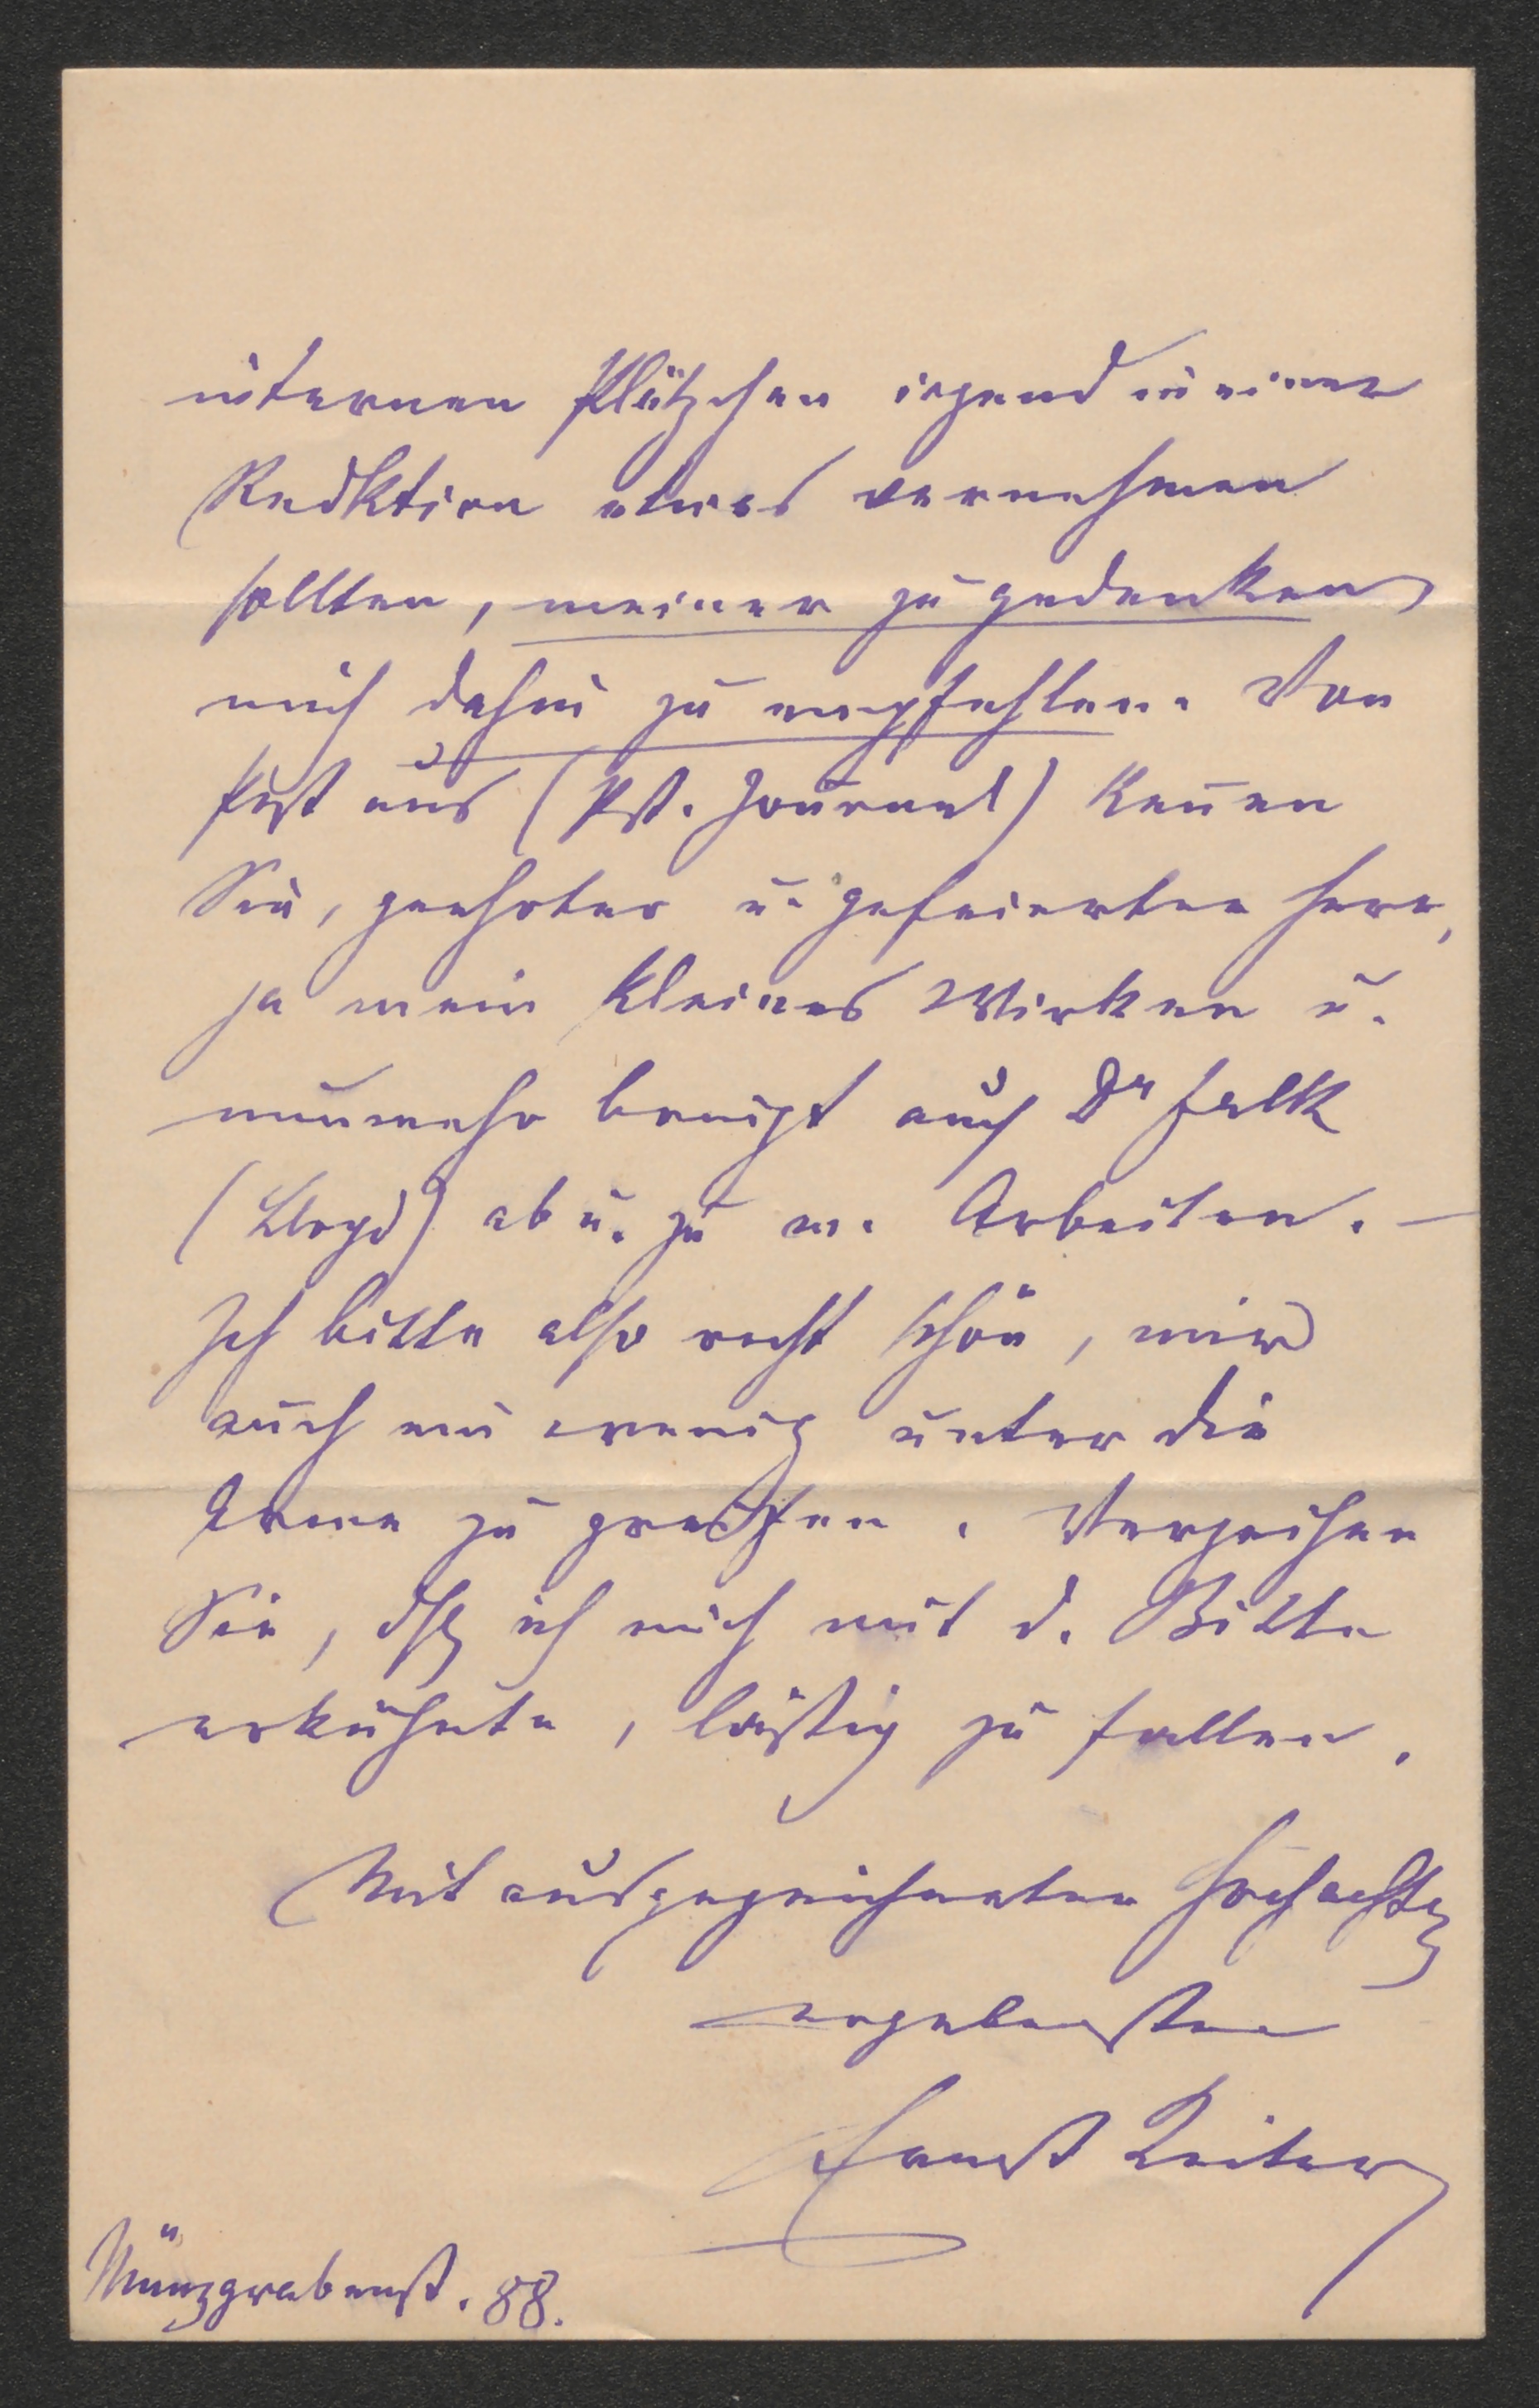 internen Plätzchen irgend in einer
Redktion etwas vernehmen
sollten, meiner zu gedenken,
mich dahin zu empfehlen. Von
Pest aus (Pst. Journal) kennen
Sie, geehrter u. gefeierter Herr,
ja mein kleines Wirken u.
nunmehr bringt auch Dr Falk
(Lloyd) ab u. zu m. Arbeiten. –
Ich bitte also recht schön, mir
auch ein wenig unter die
Arme zu greifen. Verzeihen
Sie, dß ich mich mit d. Bitte
erkühnte, lästig zu fallen.
Mit ausgezeichneter Hochachtg
ergebenster
Ernst Reiter
Münzgrabenst. 88.